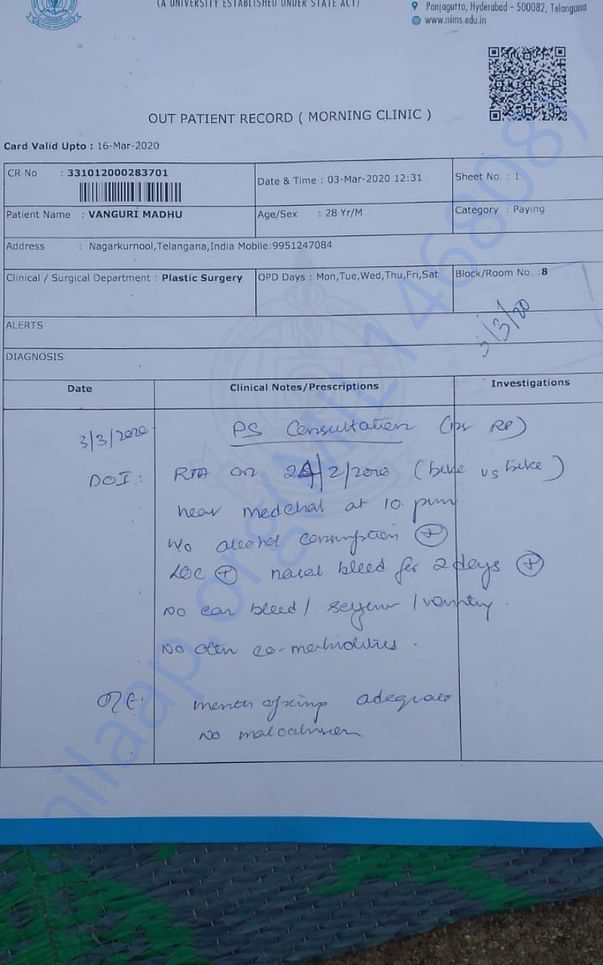 (A UNIVERSITY ESTABLISHED UNDER STATE ACT)
Panjagutta, Hyderabad - 500082, Telangana
www.nims.edu.in
OUT PATIENT RECORD ( MORNING CLINIC )
Card Valid Upto : 16-Mar-2020
CR No : 331012000283701
Date & Time : 03-Mar-2020 12:31
Sheet No. : 1
Patient Name : VANGURI MADHU
Age/Sex : 28 Yr/M
Category : Paying
Address : Nagarkurnool,Telangana,India Mobile:9951247084
Clinical / Surgical Department : Plastic Surgery
OPD Days : Mon,Tue,Wed,Thu,Fri,Sat
Block/Room No. :8
3/3/20
ALERTS
DIAGNOSIS
Date
Clinical Notes/Prescriptions
Investigations
3/3/2020
PS Consultation
DOI :
RTA on 24/2/2020 (bike vs bike)
near medchal at 10 pm
alcohol consumption +
LOC + nasal bleed for 2 days +
No ear bleed /
No co-morbidities .
O/E:
mouth opening adequate
No malocclusion
milaap.org(MIL1468087)